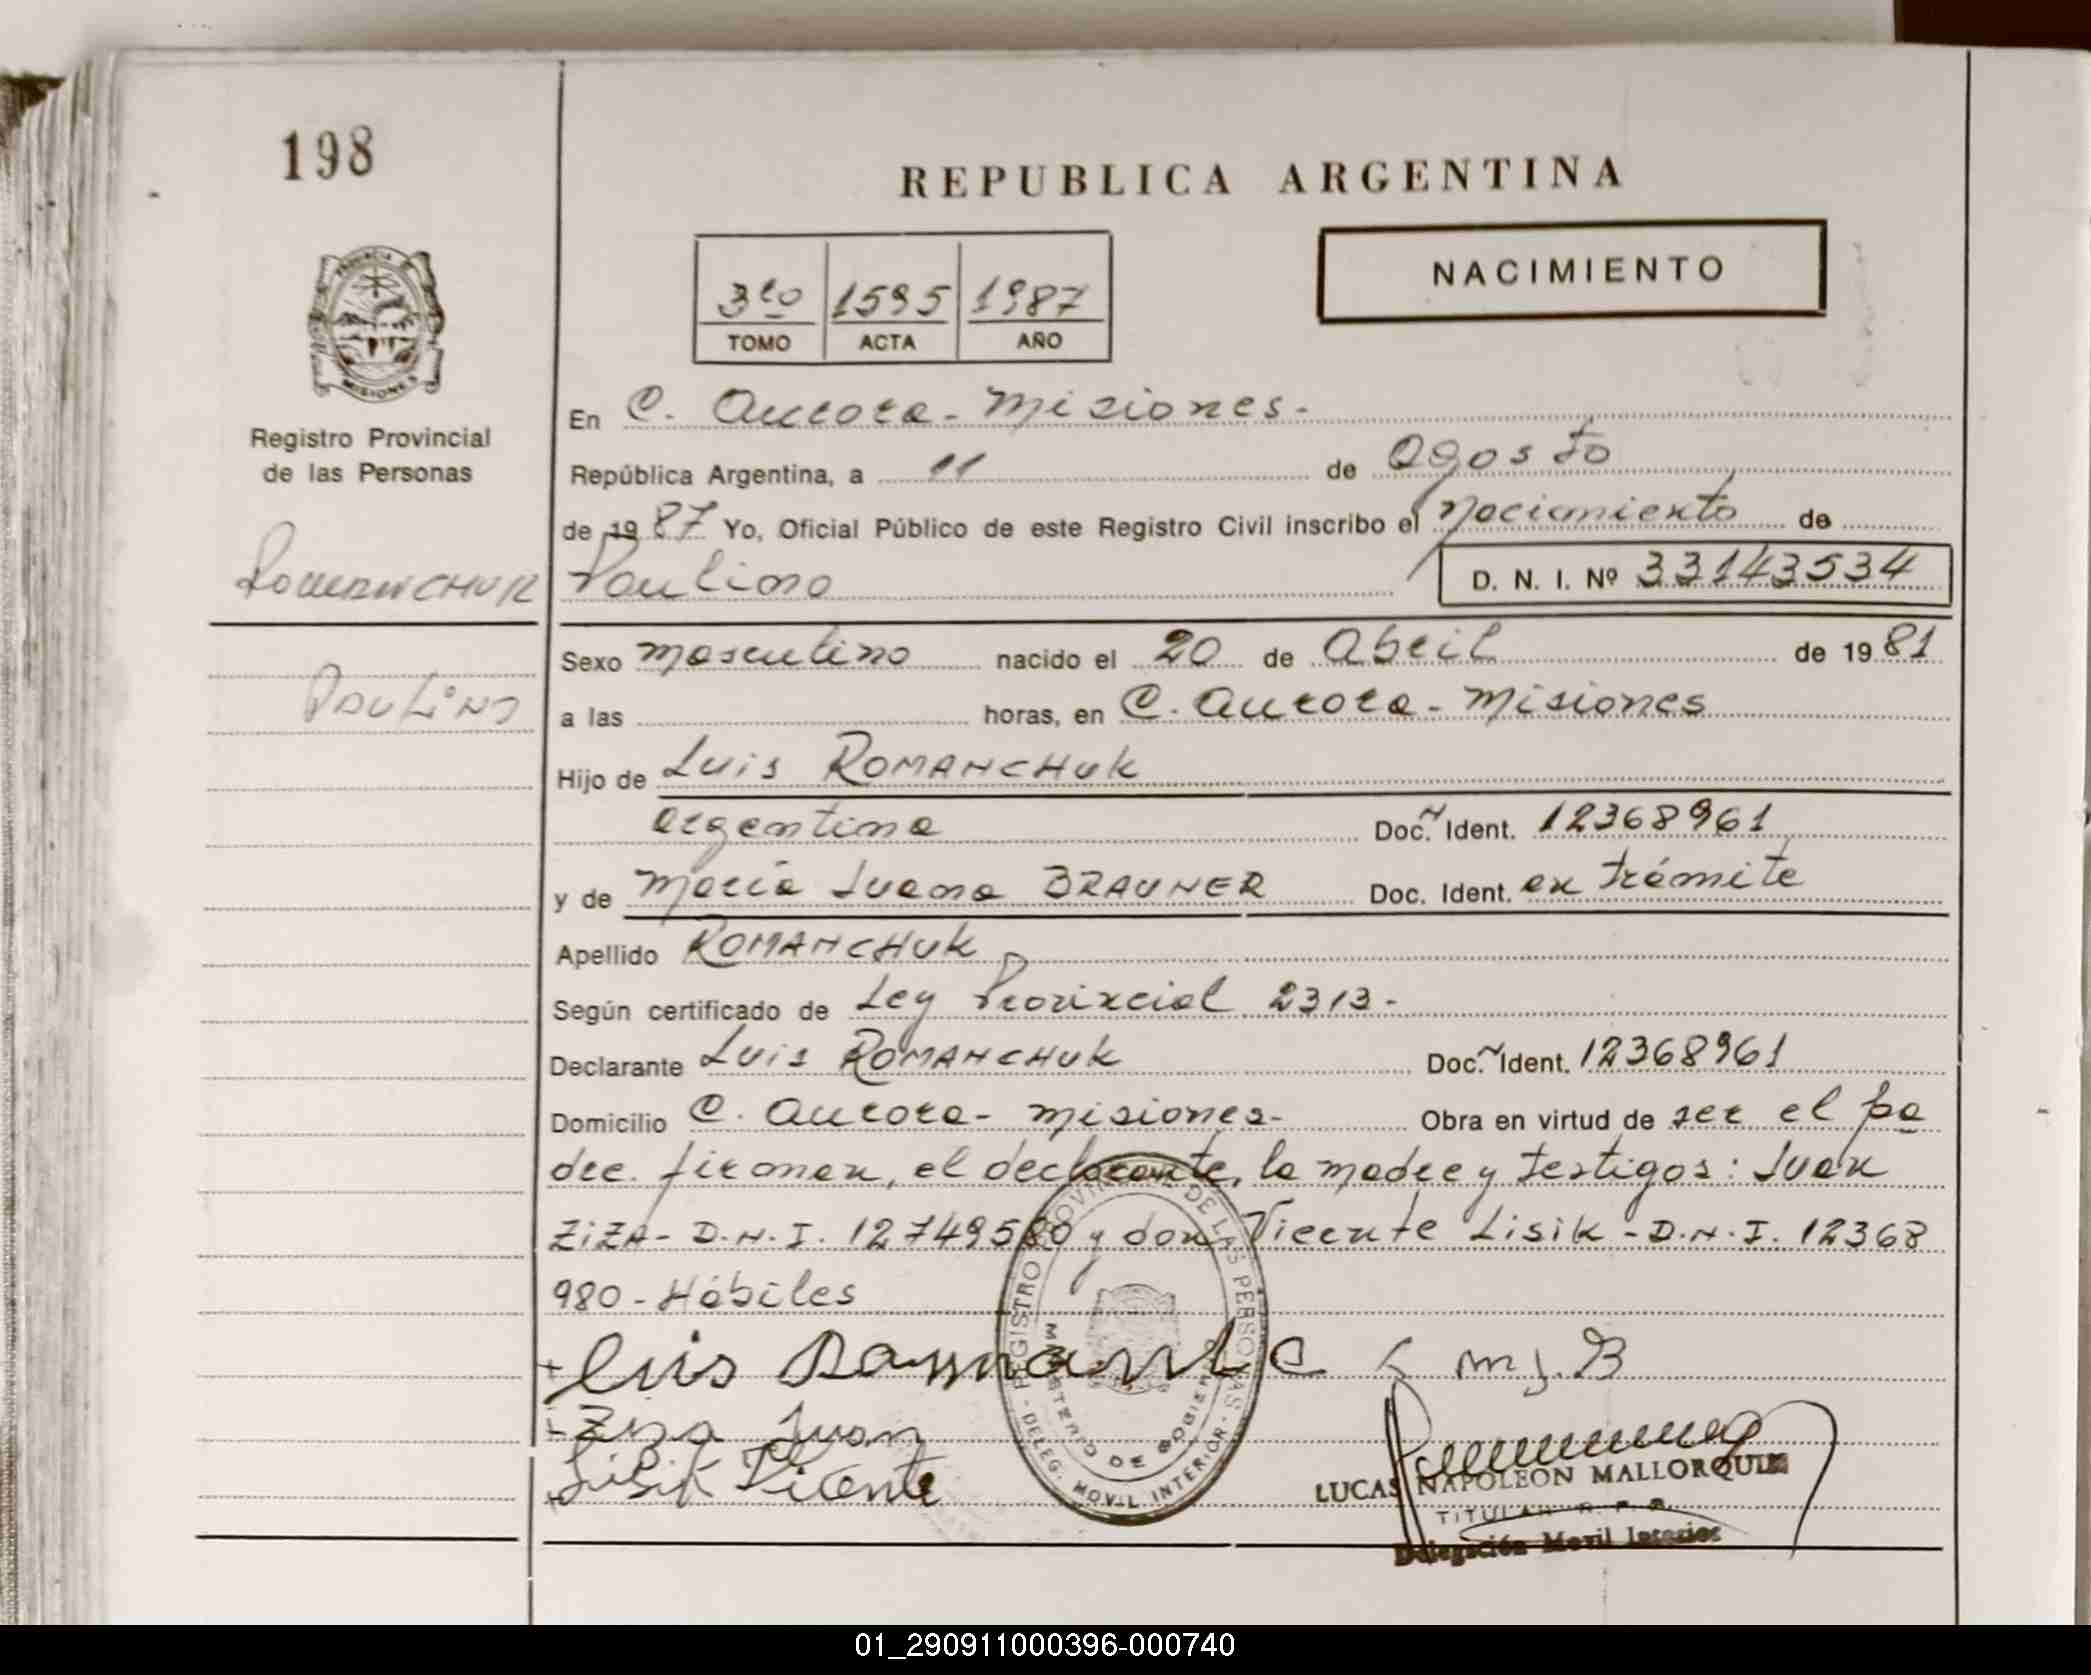 198
REPUBLICA ARGENTINA
NACIMIENTO
3ro 1595 1987
TOMO ACTA AÑO
PROVINCIA DE
MISIONES
Registro Provincial
de las Personas
ROMANCHUK
PAULINO
En C. Aurora - Misiones -
República Argentina, a 11 de Agosto
de 1987 Yo, Oficial Público de este Registro Civil inscribo el Nacimiento de
Paulino D. N. I. Nº 33143534
Sexo masculino nacido el 20 de Abril de 1981
a las horas, en C. Aurora - Misiones
Hijo de Luis ROMANCHUK
argentina Doc. Ident. 12368961
y de María Juana BRAUNER Doc. Ident. en trámite
Apellido ROMANCHUK
Según certificado de Ley Provincial 2313 -
Declarante Luis ROMANCHUK Doc. Ident. 12368961
Domicilio C. Aurora - Misiones - Obra en virtud de ser el pa
dre. firman, el declarante, la madre y testigos: Juan
ZiZA - D.N.I. 12749580 y don Vicente Lisik - D.N.I. 12368
980 - Hábiles
REGISTRO PROVINCIAL DE LAS PERSONAS
MINISTERIO DE GOBIERNO
- DELEG. MOVIL INTERIOR -
+ Luis m J. B
+ Ziza Juan
+ Lisik Vicente
LUCAS NAPOLEON MALLORQUIN
TITULAR R. P. P.
Delegación Movil Interior
01_290911000396-000740